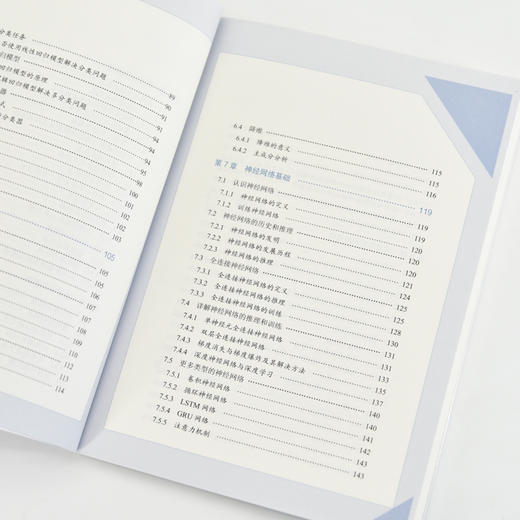 分类任务
否使用线性回归模型解决分类问题 89
归模型 90
回归模型的原理 91
辑回归模型解决多分类问题 91
器 94
式 94
分类器 94
95
98
100
102
102
103
105
105
105
107
107
107
108
109
110
112
112
113
114
6.4 降维 115
6.4.1 降维的意义 115
6.4.2 主成分分析 116
第7章 神经网络基础 119
7.1 认识神经网络 119
7.1.1 神经网络的定义 119
7.1.2 训练神经网络 119
7.2 神经网络的历史和推理 120
7.2.1 神经网络的发明 120
7.2.2 神经网络的发展历程 120
7.2.3 神经网络的推理 121
7.3 全连接神经网络 124
7.3.1 全连接神经网络的定义 125
7.3.2 全连接神经网络的推理 125
7.3.3 全连接神经网络的训练 128
7.4 详解神经网络的推理和训练 130
7.4.1 单神经元全连接神经网络 131
7.4.2 双层全连接神经网络 131
7.4.3 梯度消失与梯度爆炸及其解决方法 135
7.4.4 深度神经网络与深度学习 137
7.5 更多类型的神经网络 140
7.5.1 卷积神经网络 140
7.5.2 循环神经网络 141
7.5.3 LSTM 网络 142
7.5.4 GRU 网络 143
7.5.5 注意力机制 143